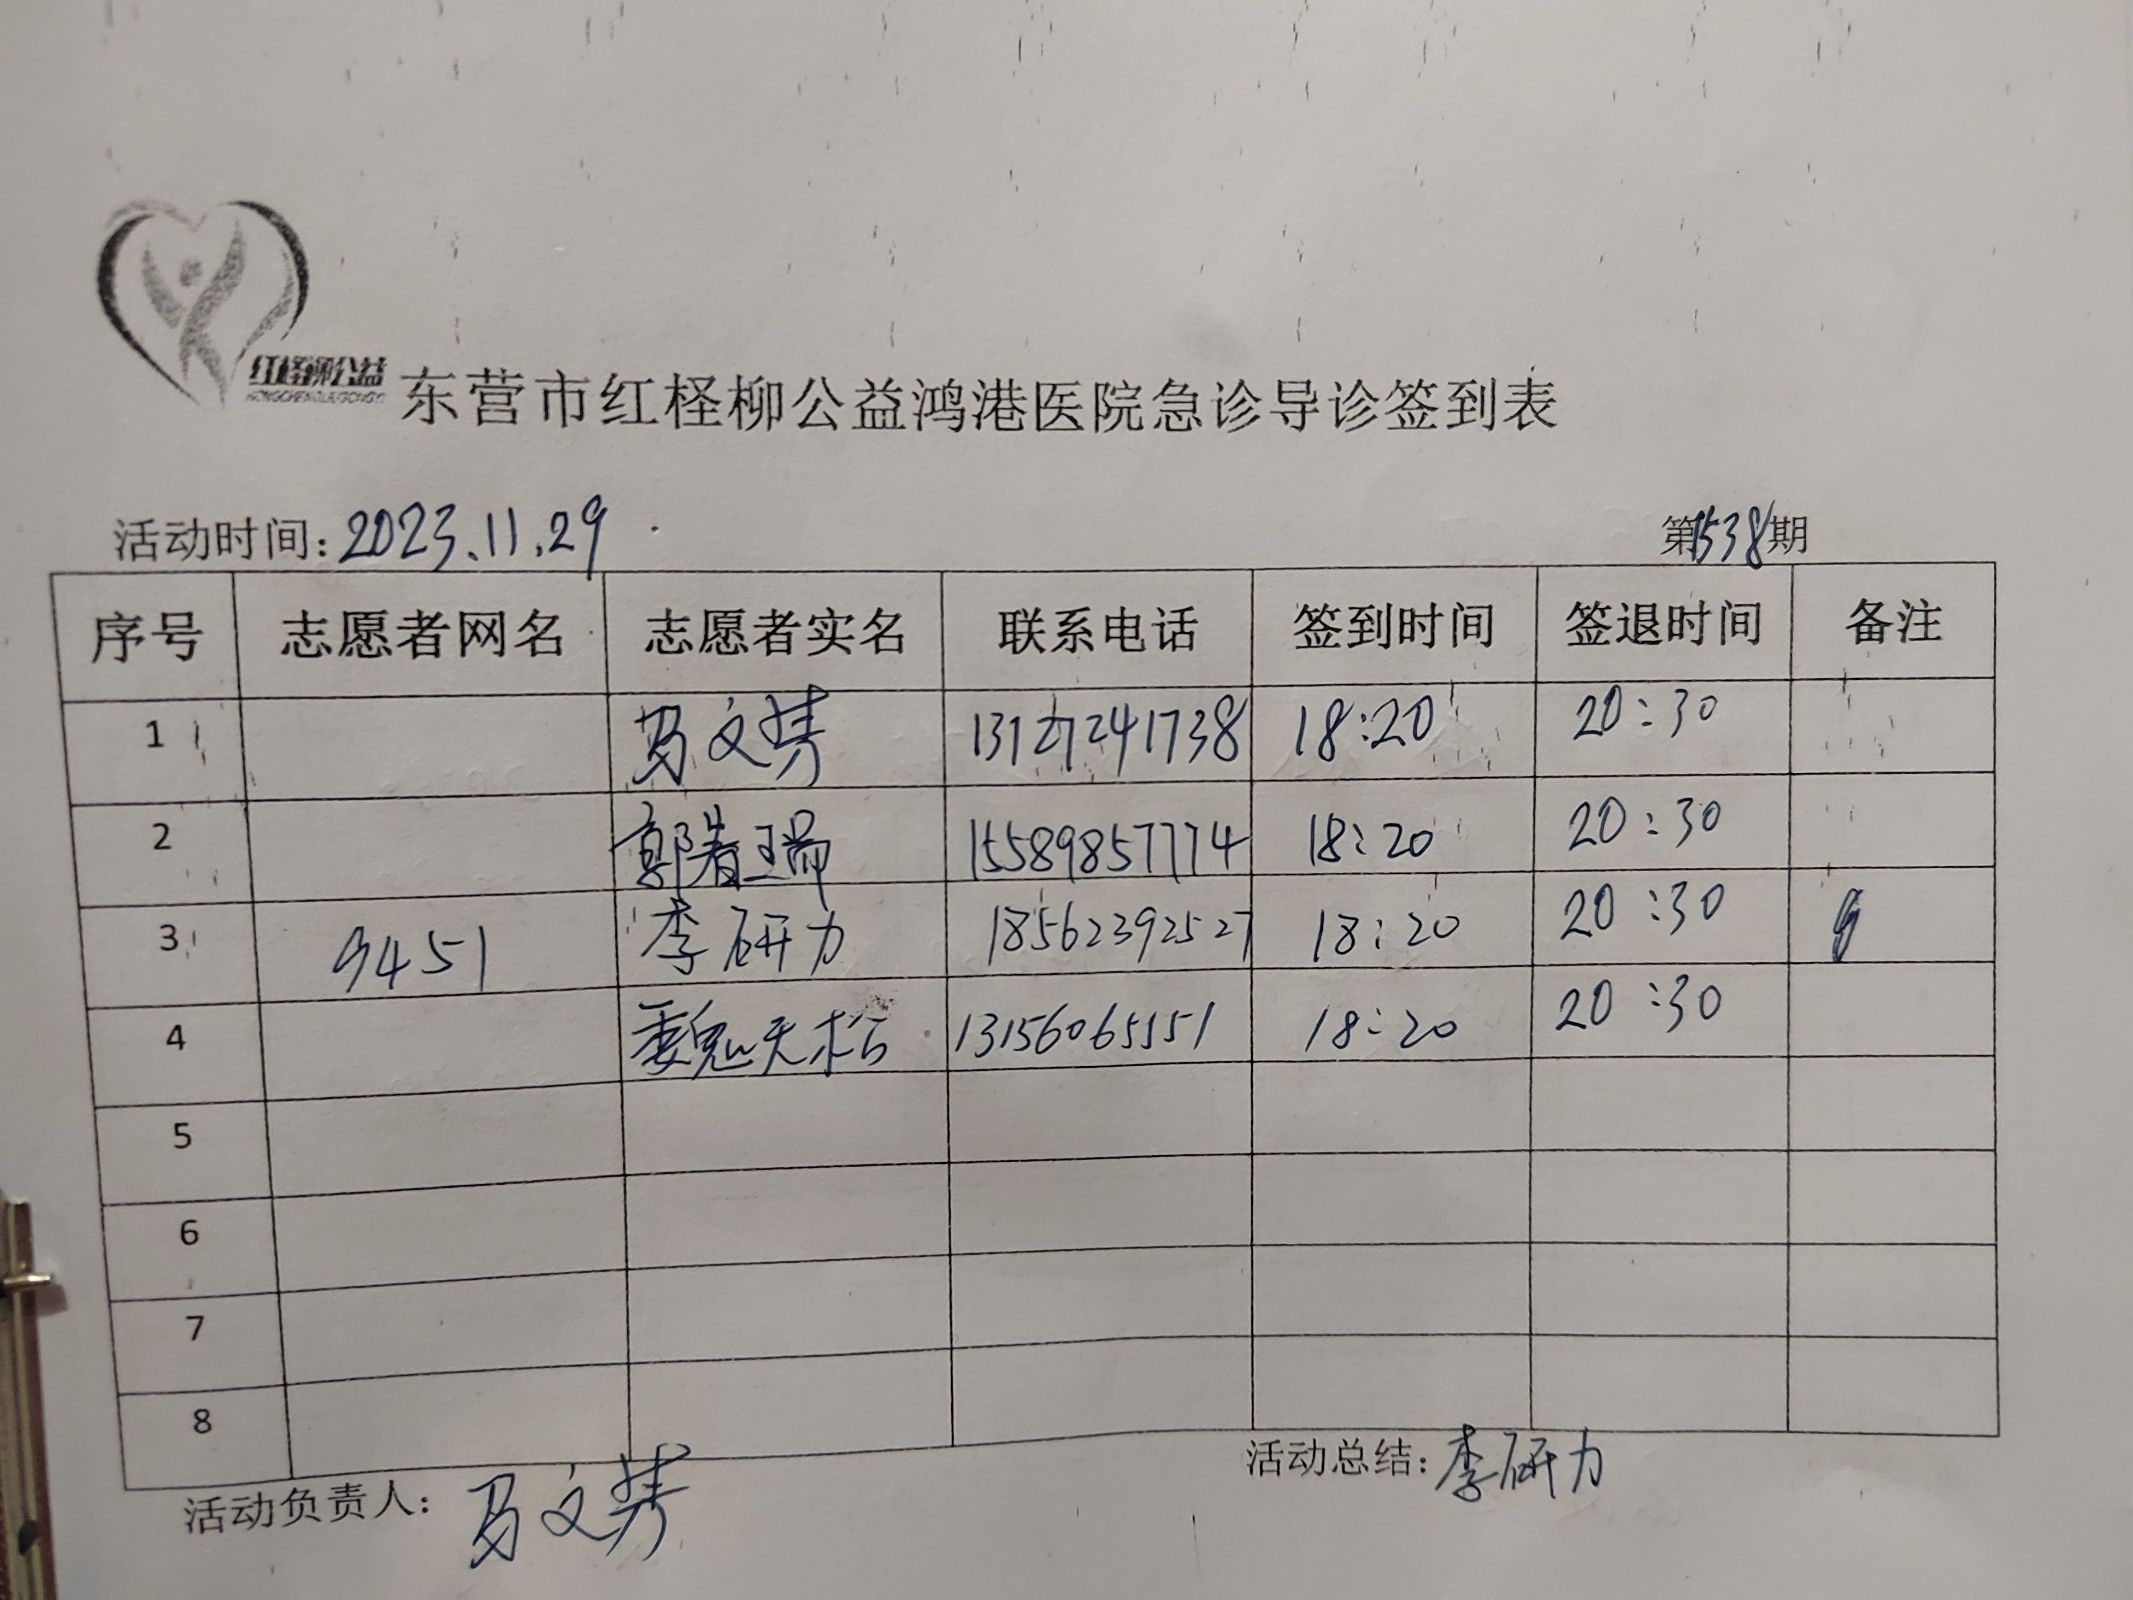 红柽柳公益
东营市红柽柳公益鸿港医院急诊导诊签到表
活动时间：2023.11.29
第1538期
序号 志愿者网名 志愿者实名 联系电话 签到时间 签退时间 备注
1 马文 13127241738 18:20 20:30
2 郭春瑞 15589857774 18:20 20:30
3 9451 李研力 18562392527 18:20 20:30
4 魏天松 13156065551 18:20 20:30
5
6
7
8
活动总结：李研力
活动负责人：马文